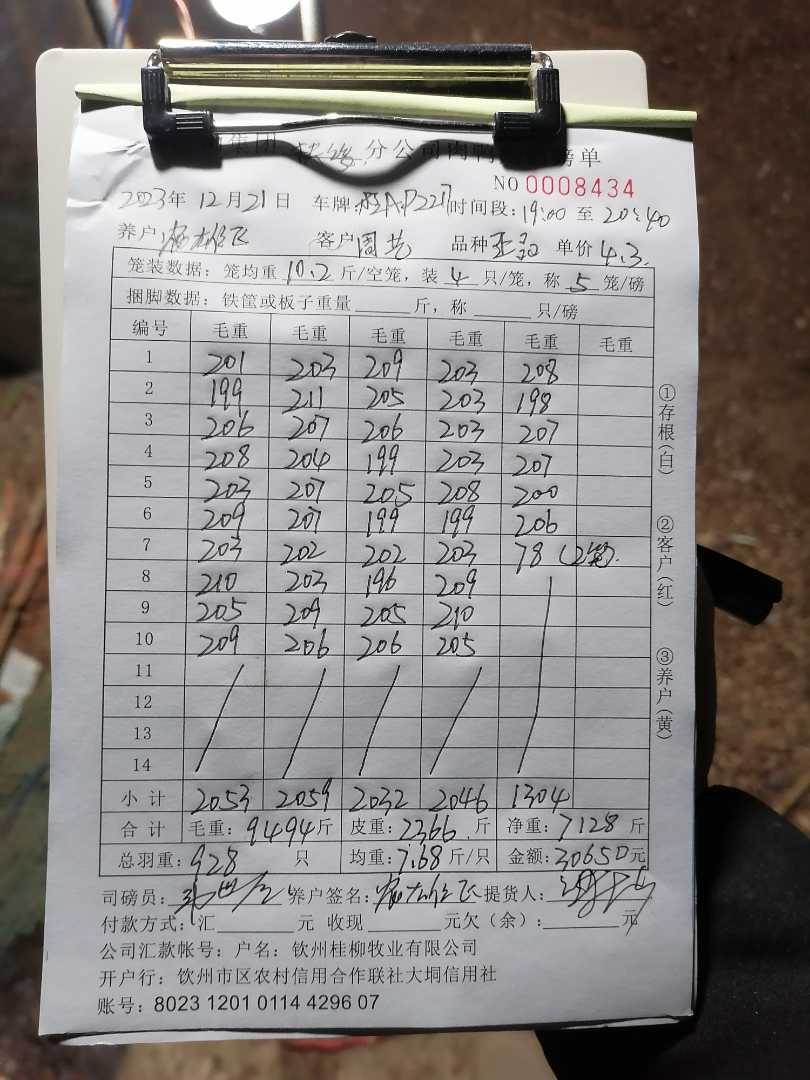 集团 分公司内 榜单
NO 0008434
2023年 12月21日 车牌: 时间段: 19:00 至 20:40
养户: 客户 周 品种 单价 4.3.
笼装数据: 笼均重 10.2 斤/空笼, 装 4 只/笼, 称 5 笼/磅
捆脚数据: 铁筐或板子重量 斤, 称 只/磅
编号 毛重 毛重 毛重 毛重 毛重 毛重
1 201 203 209 203 208
2 199 211 205 203 198
3 206 207 206 203 207
4 208 204 199 203 207
5 203 207 205 208 200
6 209 207 199 199 206
7 203 202 202 203 78 (2笼).
8 210 203 196 209
9 205 209 205 210
10 209 206 206 205
11
12
13
14
小计 2053 2059 2032 2046 1304
合计 毛重: 9494斤 皮重: 2366 斤 净重: 7128 斤
总羽重: 928 只 均重: 7.68 斤/只 金额: 30650元
司磅员: 养户签名: 提货人:
付款方式: 汇 元 收现 元欠(余): 元
公司汇款帐号: 户名: 钦州桂柳牧业有限公司
开户行: 饮州市区农村信用合作联社大垌信用社
账号: 8023 1201 0114 4296 07
①存根(白)
②客户(红)
③养户(黄)